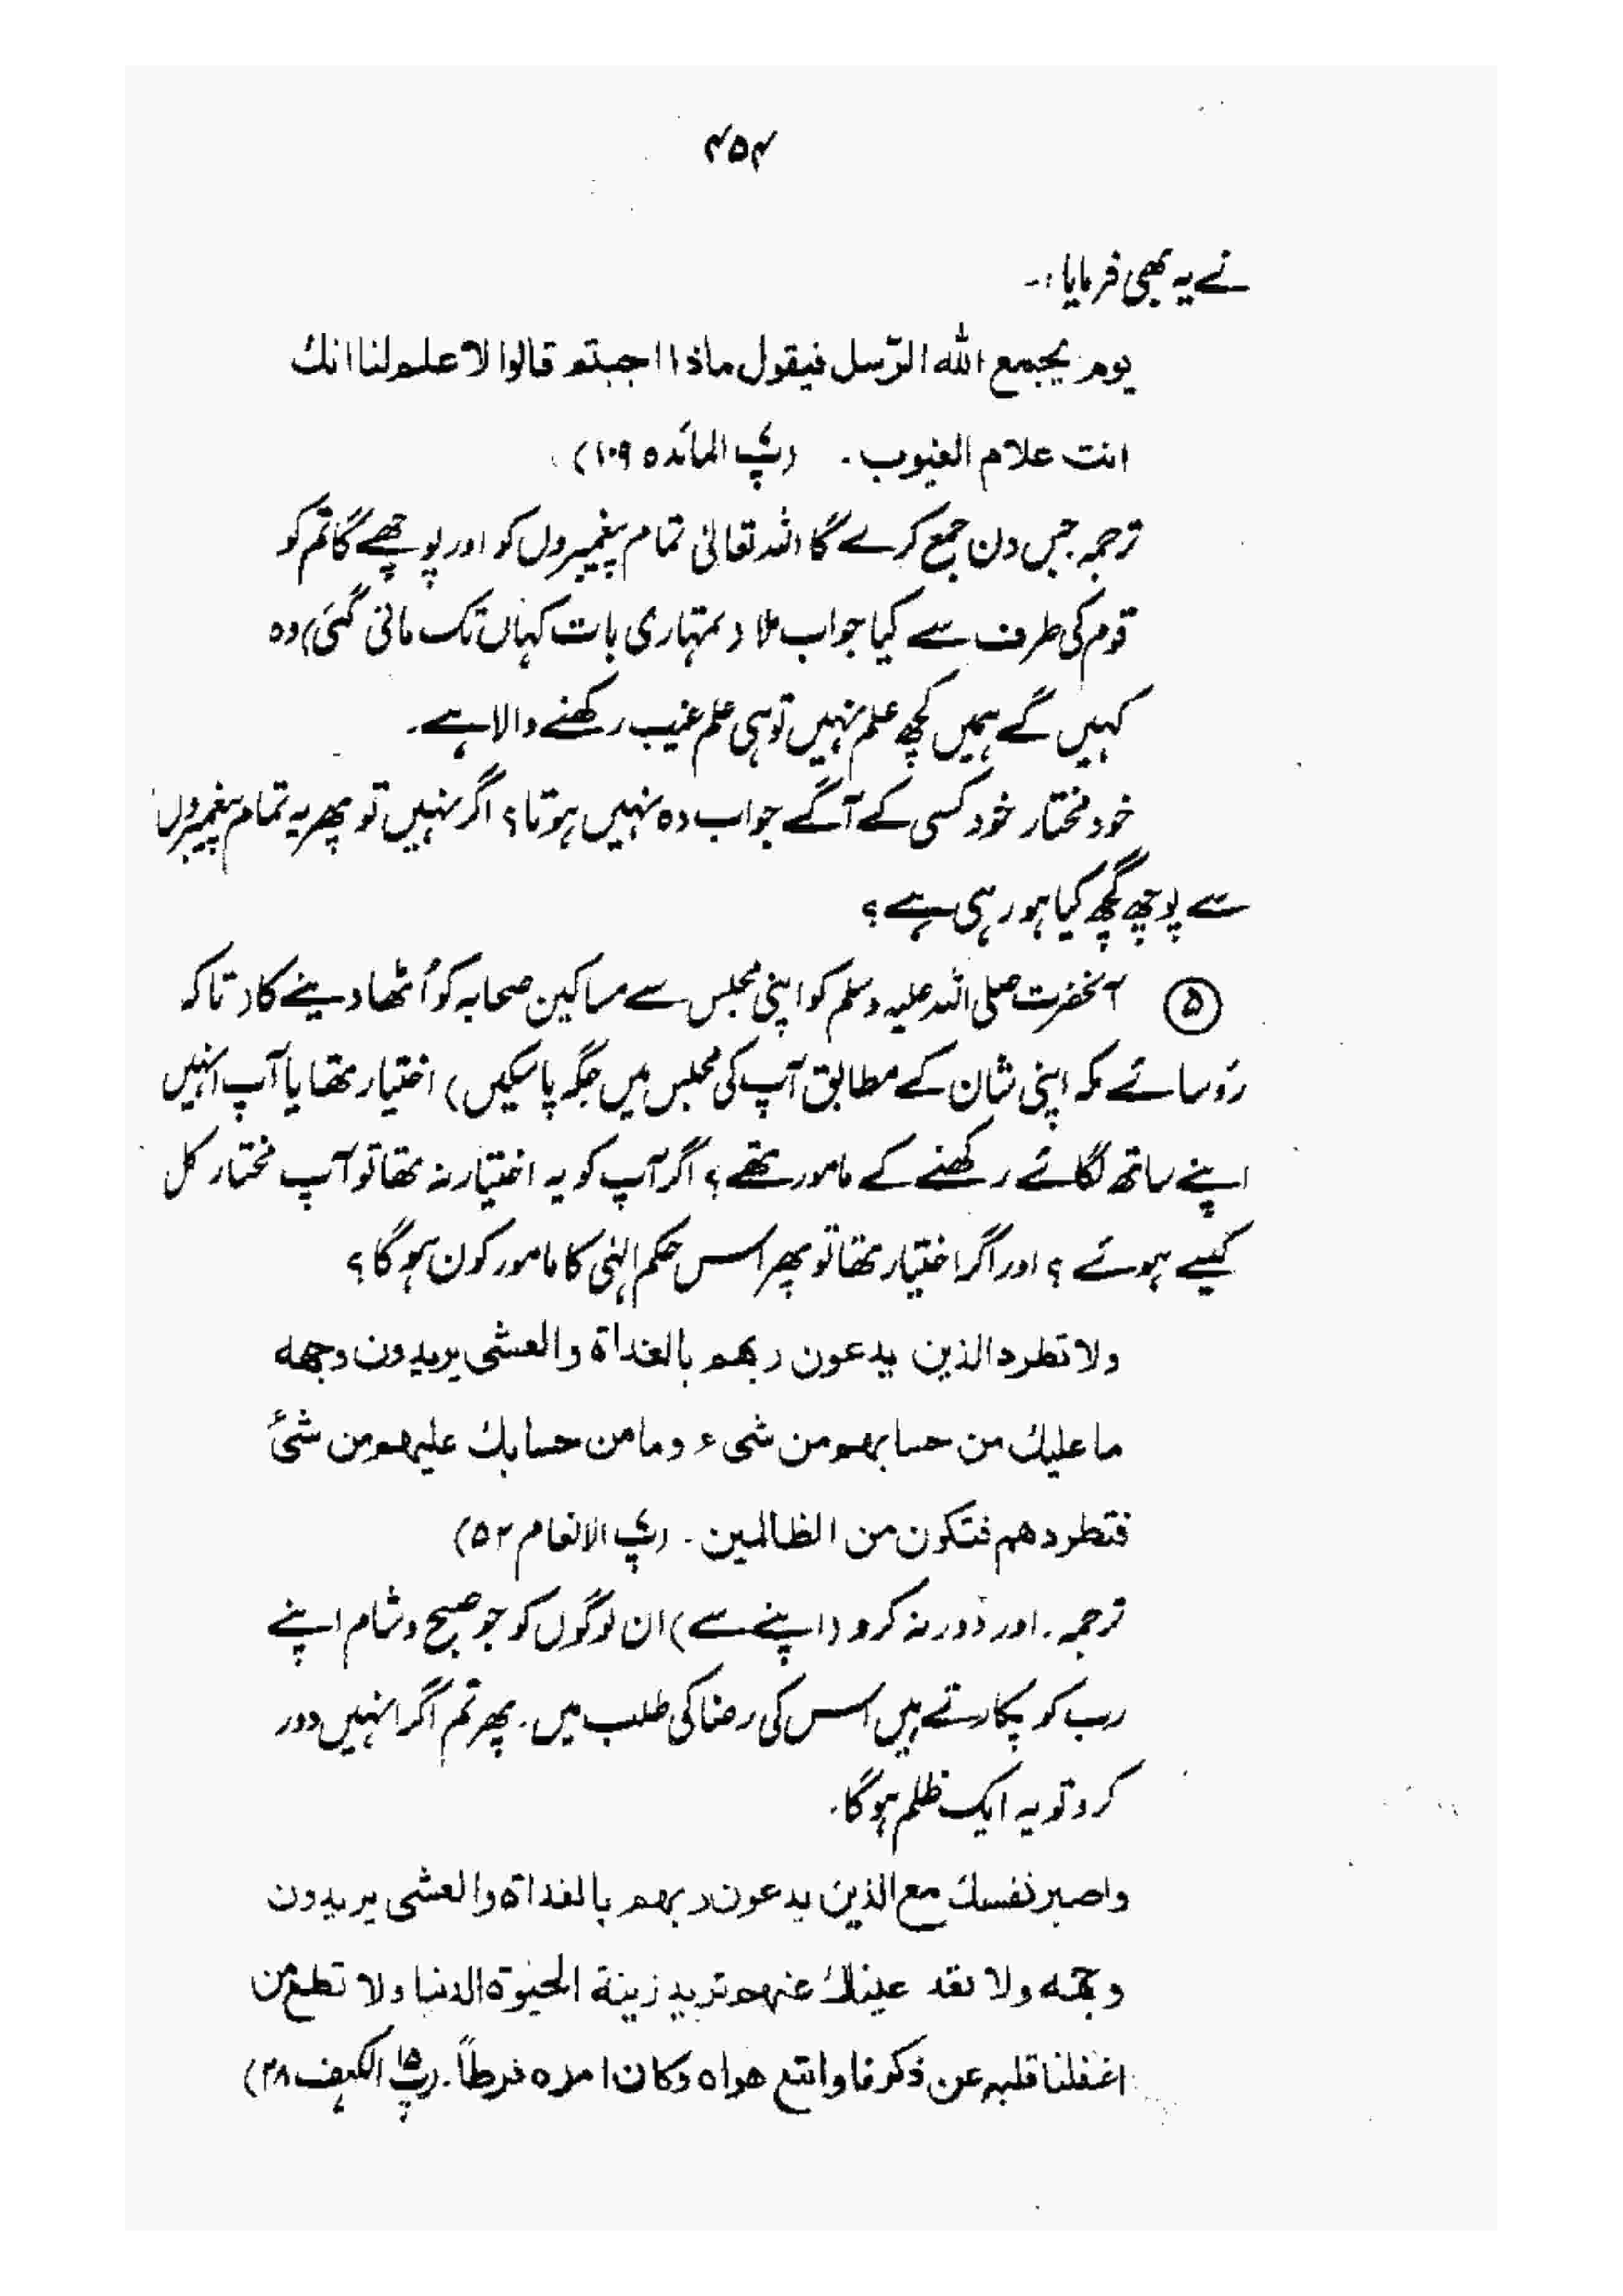 ۴۵۴
نے یہ بھی فرمایا :۔
یوم یجمع الله الرّسل فیقول ماذا اجبتم قالوا لا علم لنا انك
انت علام الغیوب ۔ (پ۷ المائدہ ۱۰۹)
ترجمہ جس دن جمع کرے گا اللہ تعالیٰ تمام پیغمبروں کو اور پوچھے گا تم کو
قوم کی طرف سے کیا جواب ملا (تمہاری بات کہاں تک مانی گئی) وہ
کہیں گے ہمیں کچھ علم نہیں تو ہی علم غیب رکھنے والا ہے۔
خود مختار خود کسی کے آگے جواب دہ نہیں ہوتا؟ اگر نہیں تو پھر یہ تمام پیغمبروں
سے پوچھ گچھ کیا ہو رہی ہے؟
۵ آنحضرت صلی اللہ علیہ وسلم کو اپنی مجلس سے مساکین صحابہ کو اُٹھا دینے کا (تاکہ
رؤسائے مکہ اپنی شان کے مطابق آپ کی مجلس میں جگہ پا سکیں) اختیار تھا یا آپ انہیں
اپنے ساتھ لگائے رکھنے کے مامور تھے؟ اگر آپ کو یہ اختیار نہ تھا تو آپ مختار کل
کیسے ہوئے؟ اور اگر اختیار تھا تو پھر اس حکم الٰہی کا مامور کون ہو گا؟
ولا تطرد الذین یدعون ربهم بالغداة والعشی یریدون وجهه
ما علیك من حسابهم من شیء وما من حسابك علیهم من شئ
فتطردهم فتکون من الظالمین ۔ (پ۷ الانعام ۵۲)
ترجمہ۔ اور دُور نہ کرو (اپنے سے) ان لوگوں کو جو صبح و شام اپنے
رب کو پکارتے ہیں اس کی رضا کی طلب میں۔ پھر تم اگر انہیں دور
کرو تو یہ ایک ظلم ہو گا۔
واصبر نفسك مع الذین یدعون ربهم بالغداة والعشی یریدون
وجهه ولا تعد عیناك عنهم ترید زینة الحیوة الدنیا ولا تطع من
اغفلنا قلبه عن ذکرنا واتبع هواه وکان امره فرطاً۔ (پ۱۵ الکہف ۲۸)